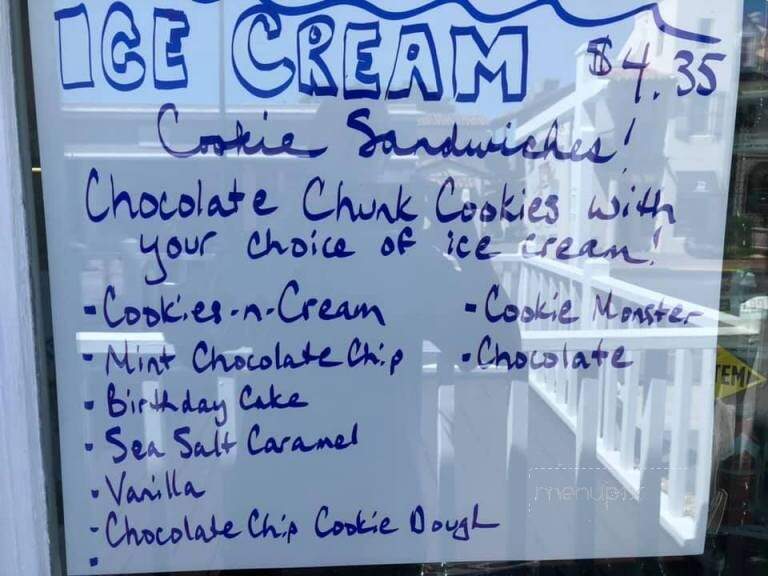 ICE CREAM $4.35
Cookie Sandwiches!
Chocolate Chunk Cookies with
your choice of ice cream!
- Cookies-n-Cream
- Mint Chocolate Chip
- Birthday Cake
- Sea Salt Caramel
- Vanilla
- Chocolate Chip Cookie Dough
- Cookie Monster
- Chocolate
TEM!
menupix